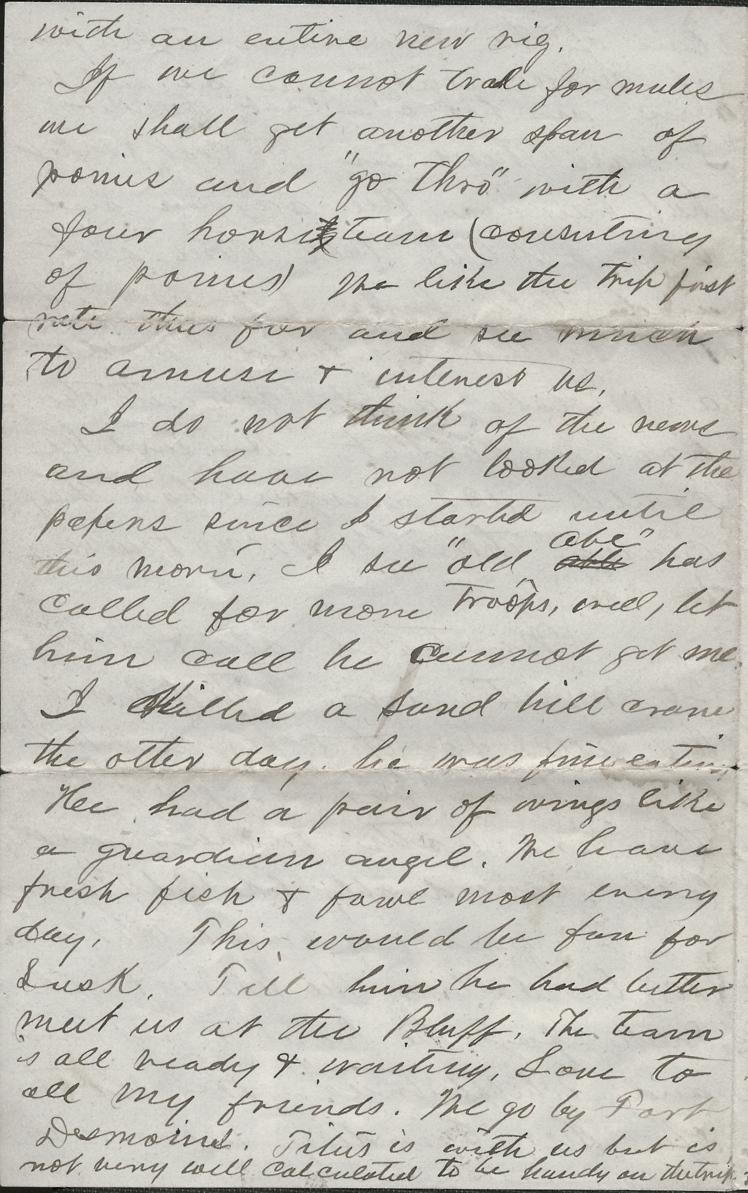 with an entire new rig.
If we cannot trade for mules
we shall get another span of
ponies and "go thro" with a
four horse team (consisting
of ponies) We like the trip first
rate thus far and see much
to amuse & interest us.
I do not think of the news
and have not looked at the
papers since I started until
this morn. I see "old abe" has
called for more troops, well, let
him call he cannot get me.
I killed a sand hill crane
the other day. he was fine eating,
He had a pair of wings like
a guardian angel. We have
fresh fish & fowl most every
day. This would be fun for
Lusk. Tell him he had better
meet us at the Bluff. The team
is all ready & waiting. Love to
all my friends. We go by Fort
Desmoines. Titus is with us but is
not very well calculated to be handy on the trip.